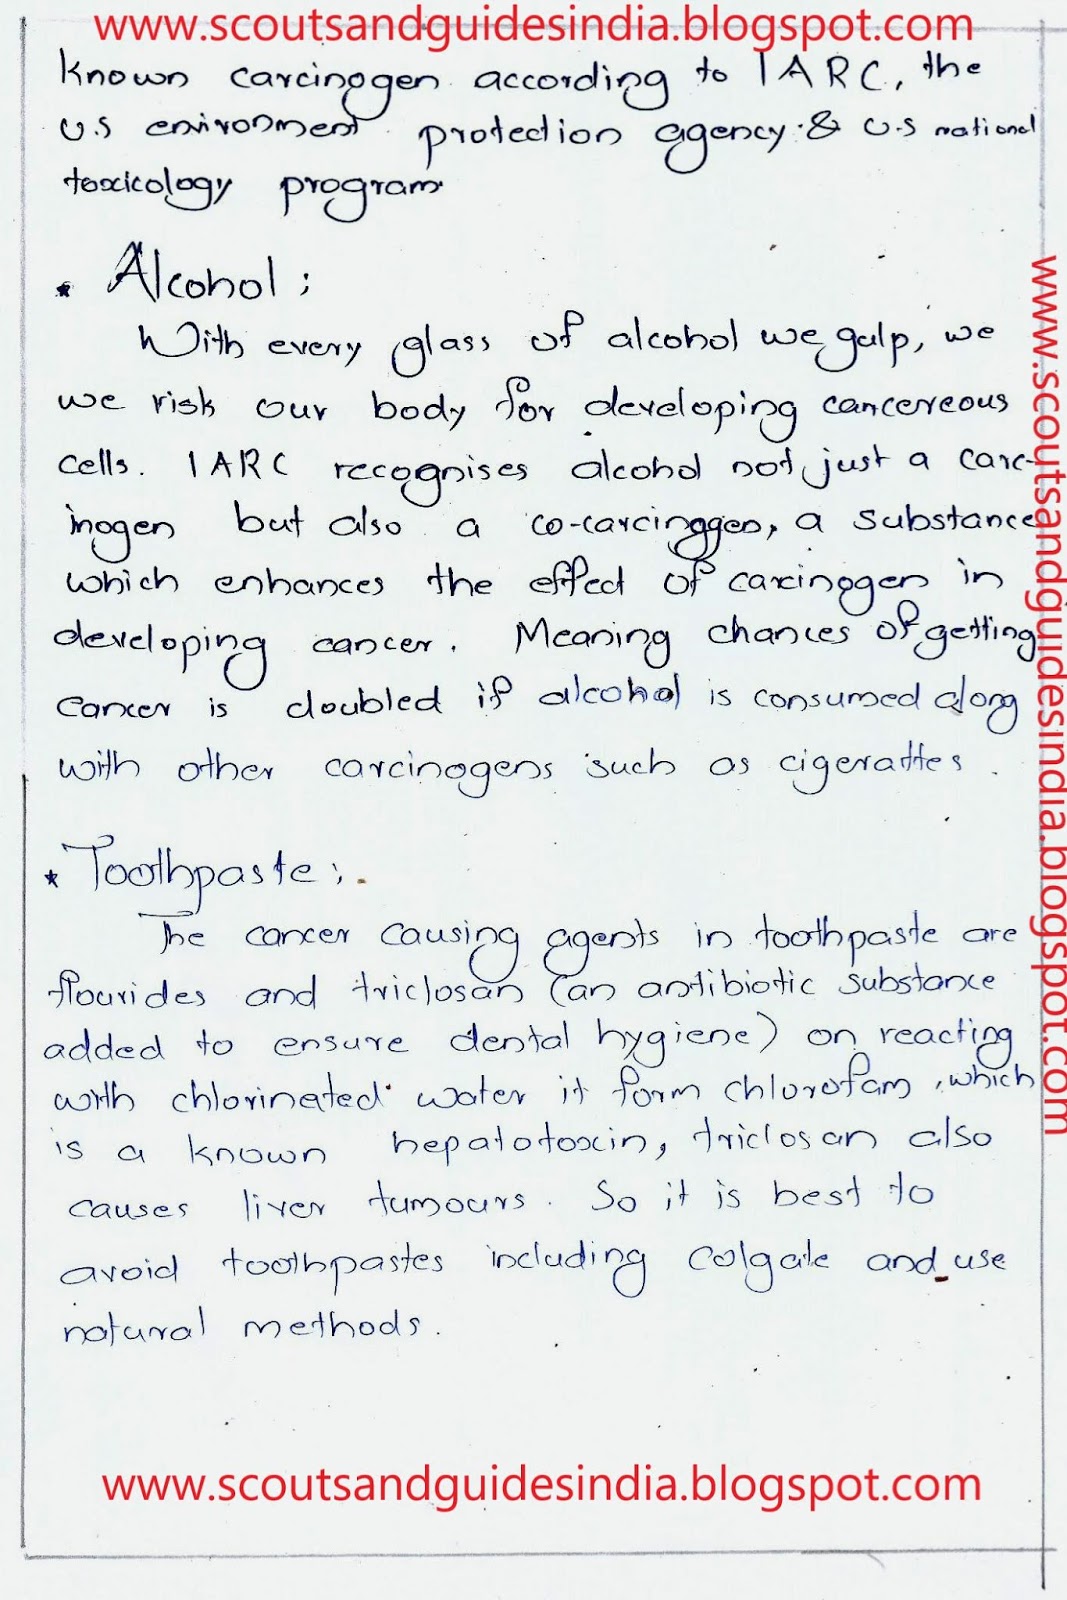 www.scoutsandguidesindia.blogspot.com
known carcinogen according to IARC, the
U.S environment protection agency & U.S national
toxicology program.
* Alcohol :
With every glass of alcohol we gulp, we
we risk our body for developing cancereous
cells. IARC recognises alcohol not just a carc-
inogen but also a co-carcinogen, a substance
which enhances the effect of carcinogen in
developing cancer. Meaning chances of getting
cancer is doubled if alcohol is consumed along
with other carcinogens such as cigerattes.
www.scoutsandguidesindia.blogspot.com
* Toothpaste :
The cancer causing agents in toothpaste are
flourides and triclosan (an antibiotic substance
added to ensure dental hygiene) on reacting
with chlorinated water it form chlorofam, which
is a known hepatotoxin, triclosan also
causes liver tumours. So it is best to
avoid toothpastes including colgate and use
natural methods.
www.scoutsandguidesindia.blogspot.com